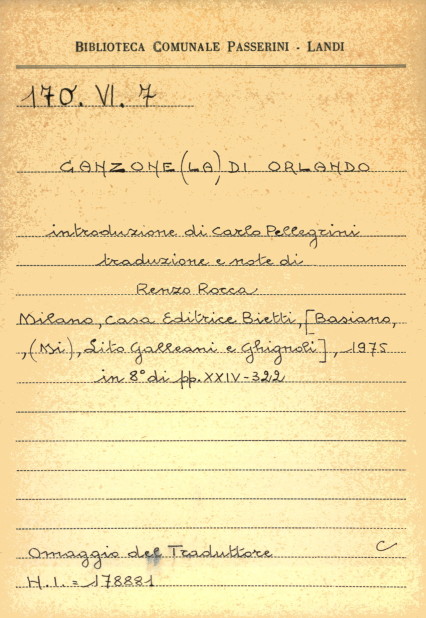 BIBLIOTECA COMUNALE PASSERINI - LANDI
170. VI. 7
CANZONE (LA) DI ORLANDO
introduzione di Carlo Pellegrini
traduzione e note di
Renzo Rocca
Milano, Casa Editrice Bietti, [Basiano,
, (Mi), Lito Galleani e Ghignoli], 1975
in 8° di pp. XXIV-322
Omaggio del Traduttore C
H.I. = 178881